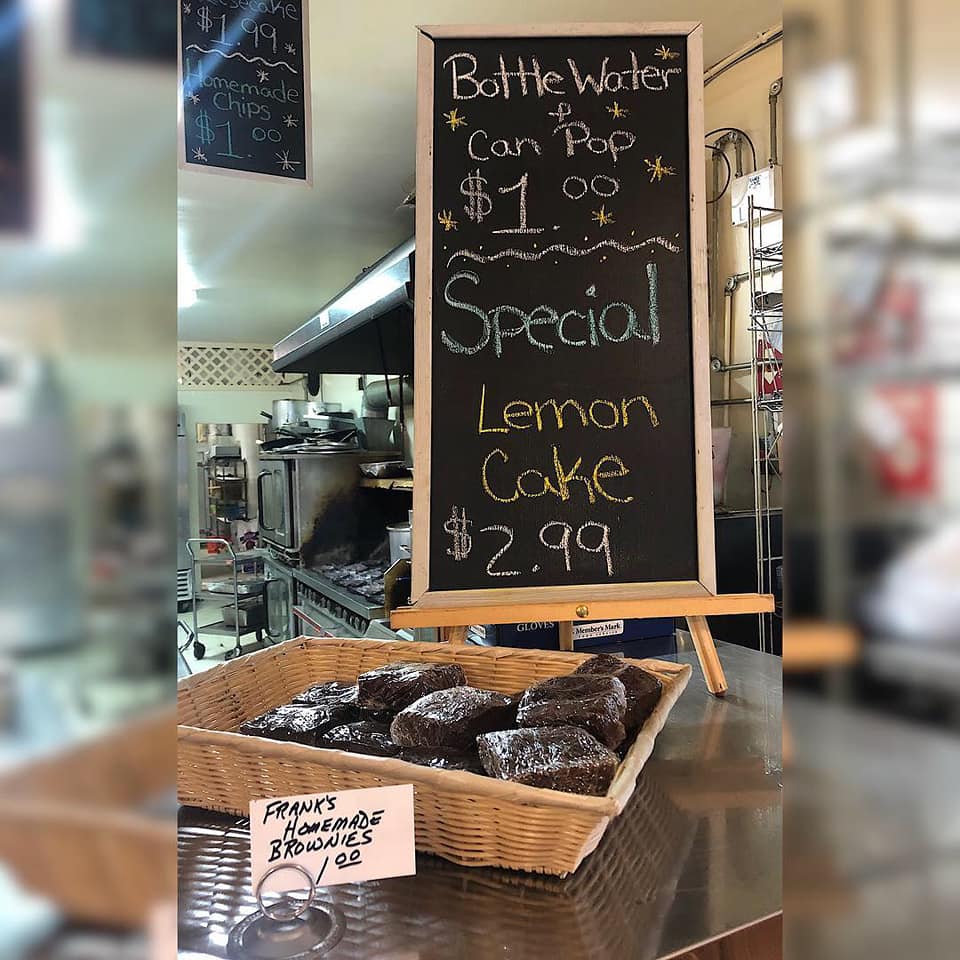 $1.99
Homemade
Chips
$1.00
Bottle Water
&
Can Pop
$1.00
Special
Lemon
Cake
$2.99
GLOVES
Member's Mark
FRANK'S
HOMEMADE
BROWNIES
1.00